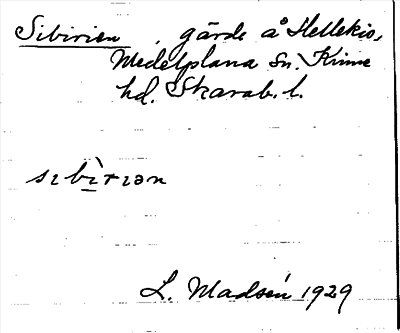 Sibirien, gärde å Hellekis,
Medelplana sn. Kinne
hd. Skarab. l.
sıbı̀rıən
L. Madsén 1929